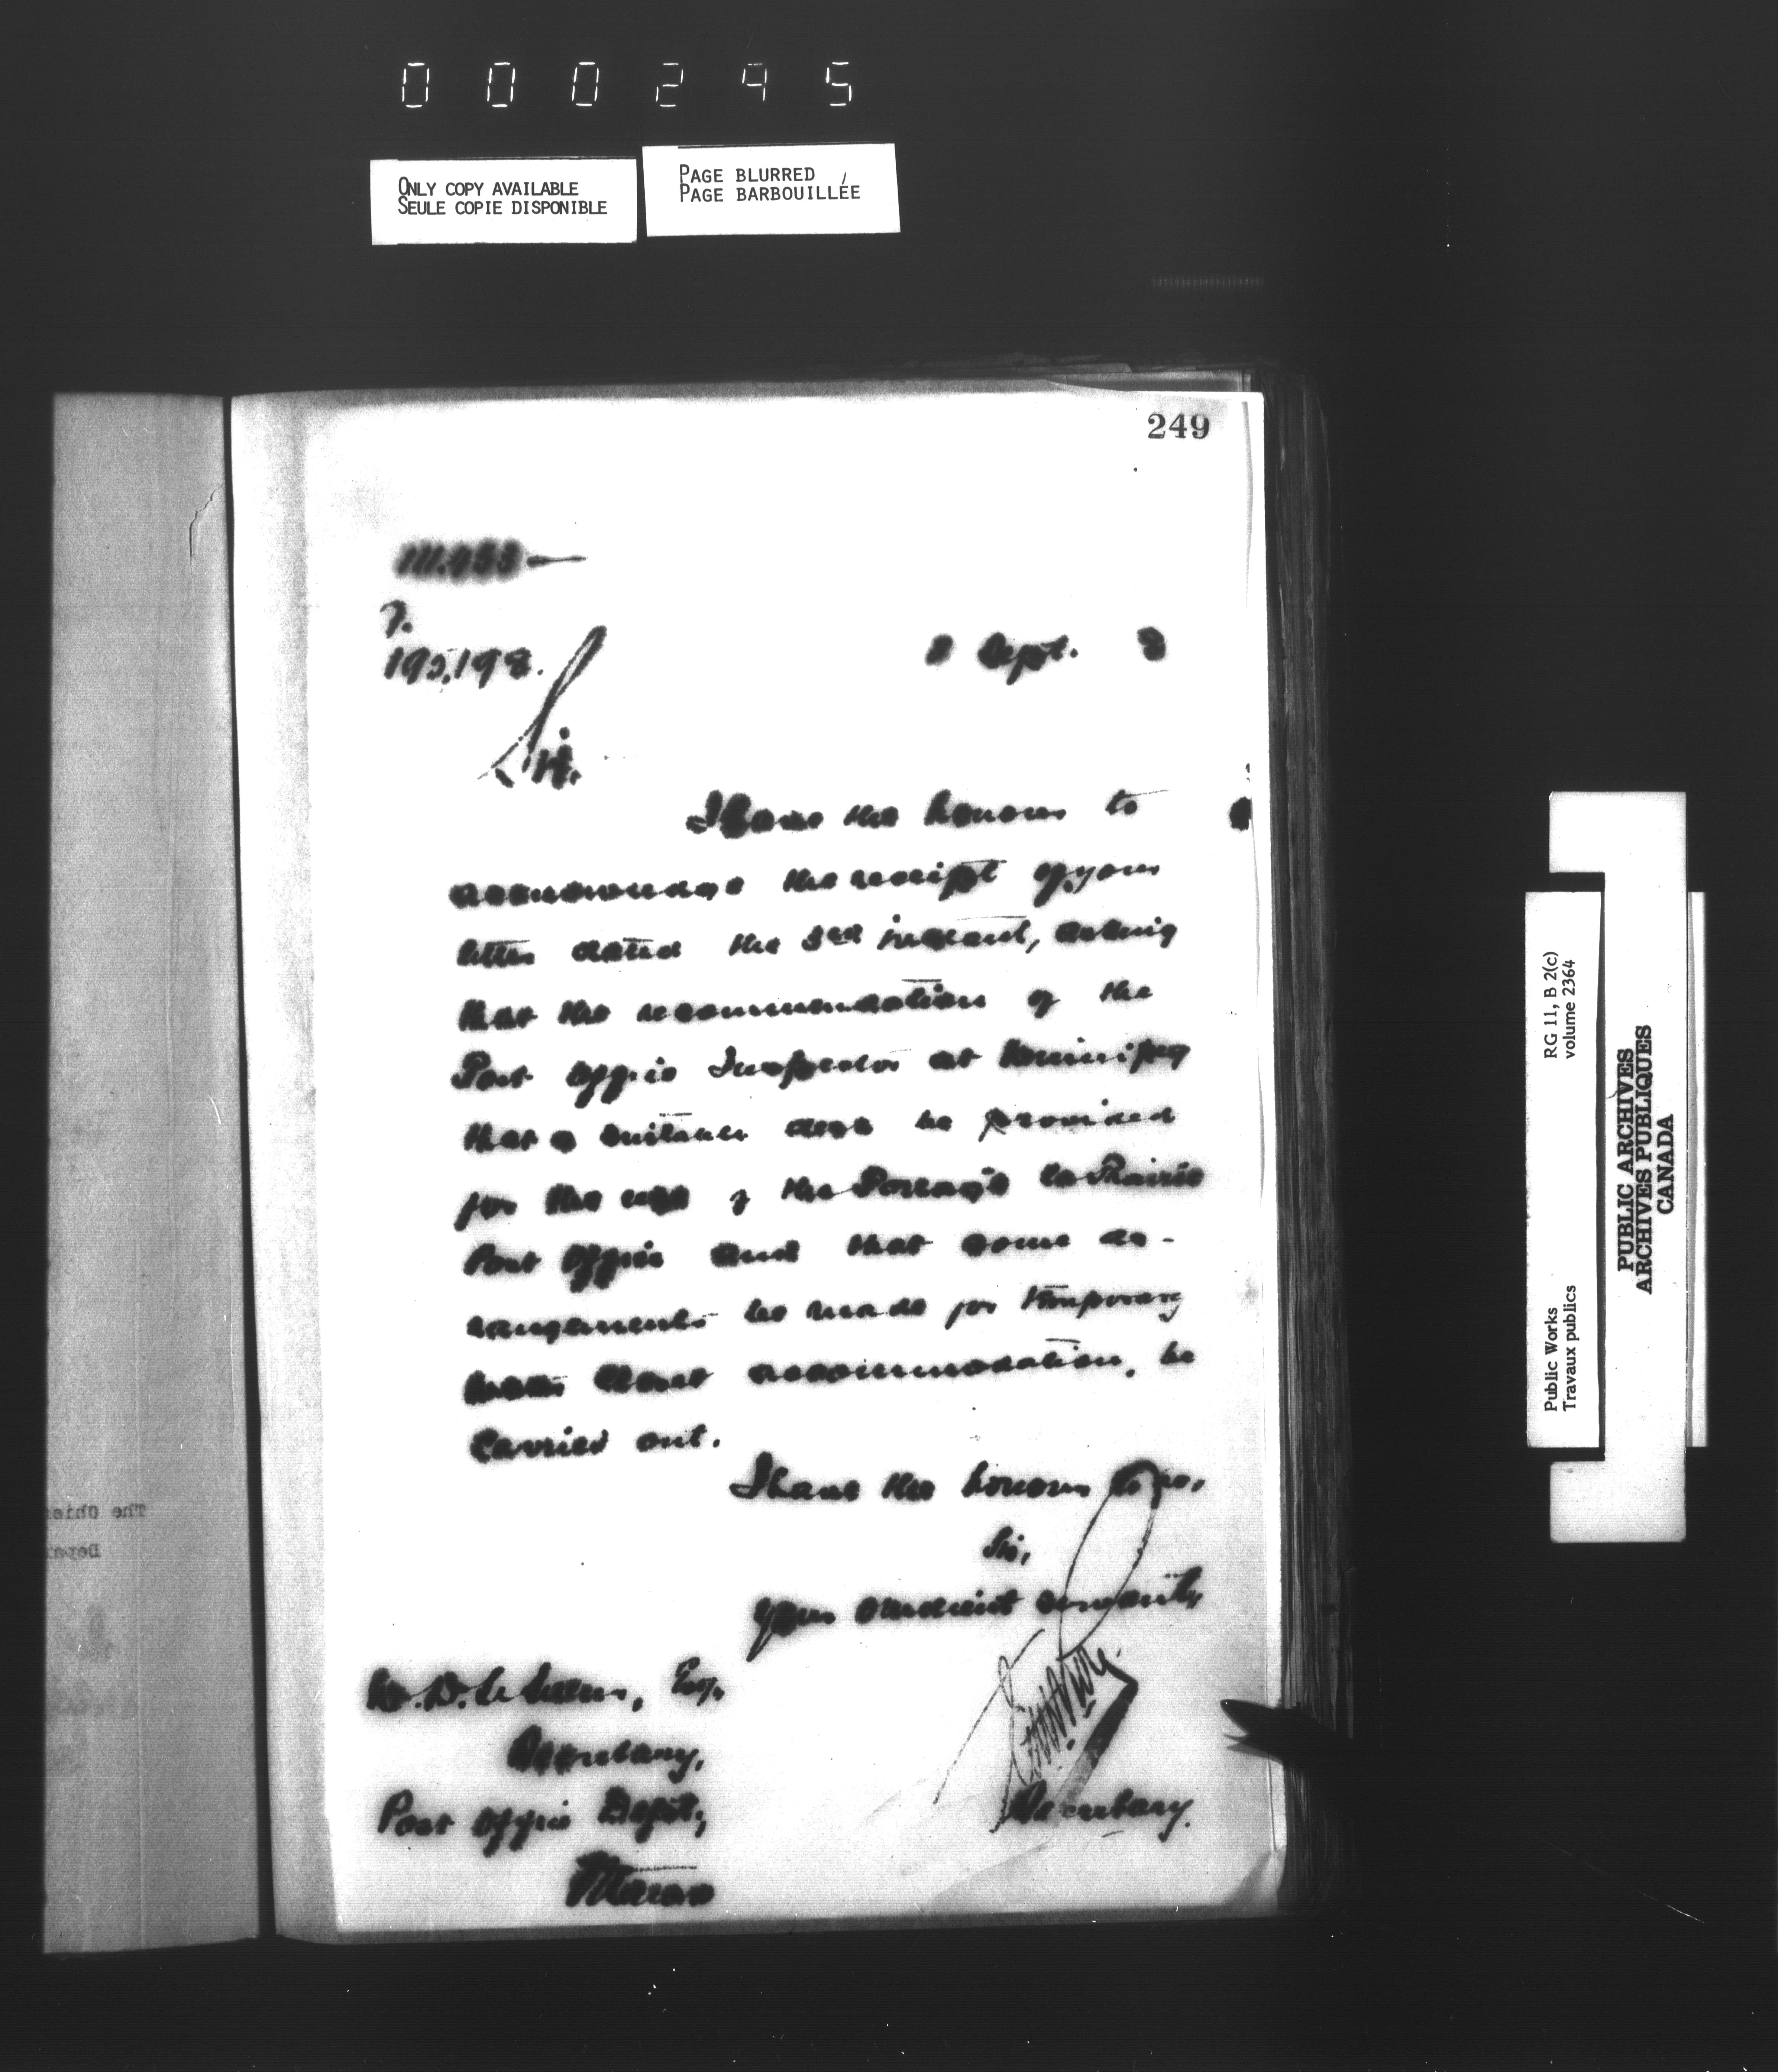 000245
ONLY COPY AVAILABLE
SEULE COPIE DISPONIBLE
PAGE BLURRED
PAGE BARBOUILLÉE
249
111.453
7.
195,198.
8 Sept. 8
Sir,
I have the honour to
acknowledge the receipt of your
letter dated the 3rd instant, asking
that the recommendation of the
Post Office Inspector at Winnipeg
that a suitable desk be provided
for the use of the Portage la Prairie
Post Office and that some ar-
rangements be made for temporary
water closet accommodation, be
carried out.
I have the honour to be,
Sir,
Your obedient servant,
W. D. LeSueur, Esq,
Secretary,
Post Office Dept,
Ottawa
Secretary.
The Chie
Depa
RG 11, B 2(c)
volume 2364
Public Works
Travaux publics
PUBLIC ARCHIVES
ARCHIVES PUBLIQUES
CANADA